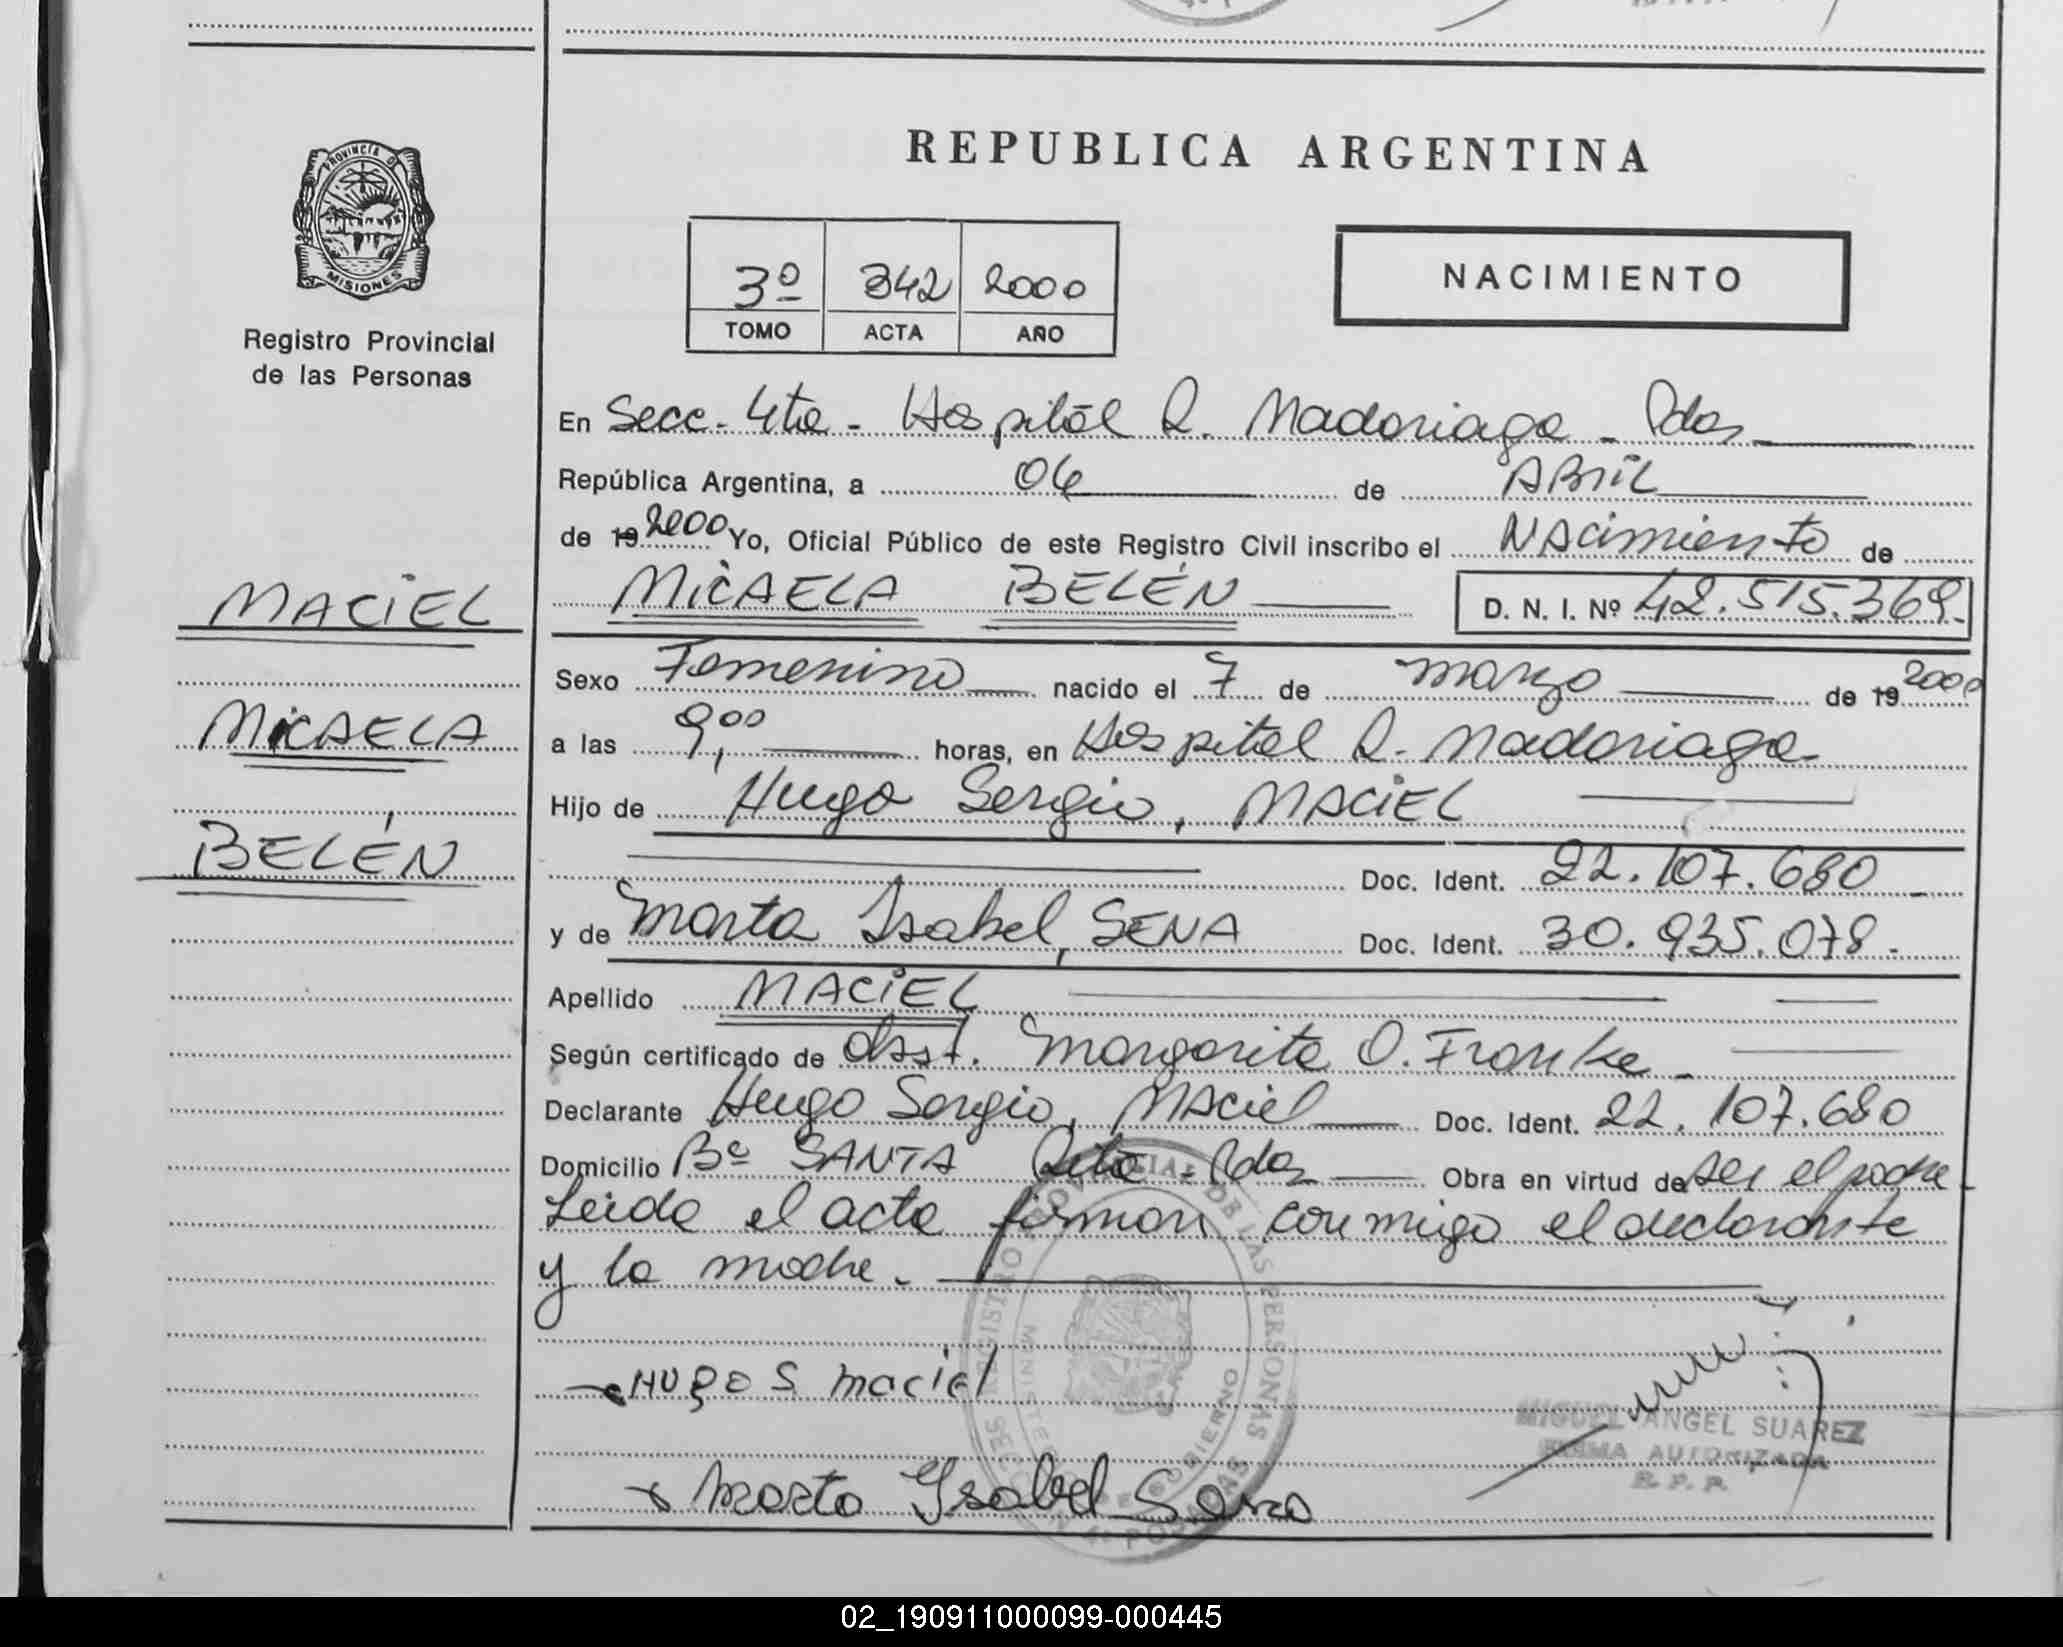 REPUBLICA ARGENTINA
PROVINCIA D
MISIONES
Registro Provincial
de las Personas
3º 342 2000
TOMO ACTA AÑO
NACIMIENTO
En Secc. 4ta - Hospital R. Madariaga - Pdas
República Argentina, a 06 de ABRIL
de 19 2000 Yo, Oficial Público de este Registro Civil inscribo el NAcimiento de
MICAELA BELÉN D. N. I. Nº 42.515.369.
MACIEL
MICAELA
BELÉN
Sexo Femenino nacido el 7 de marzo de 19 2000
a las 9,00 horas, en Hospital R. Madariaga
Hijo de Hugo Sergio, MACIEL
Doc. Ident. 22.107.680
y de Marta Isabel, SENA Doc. Ident. 30.935.078.
Apellido MACIEL
Según certificado de Obst. Margarita O. Franke
Declarante Hugo Sergio, MAciel Doc. Ident. 22.107.680
Domicilio Bº SANTA Rita - Pdas Obra en virtud de ser el padre
Leida el acta firman conmigo el declarante
y la madre.
HUgO S maciel
Marta Ysabel Sena
REGISTRO PROVINCIAL DE LAS PERSONAS
MINISTERIO DE GOBIERNO
SECCION 4ª POSADAS
MIGUEL ANGEL SUAREZ
FIRMA AUTORIZADA
R. P. P.
02_190911000099-000445